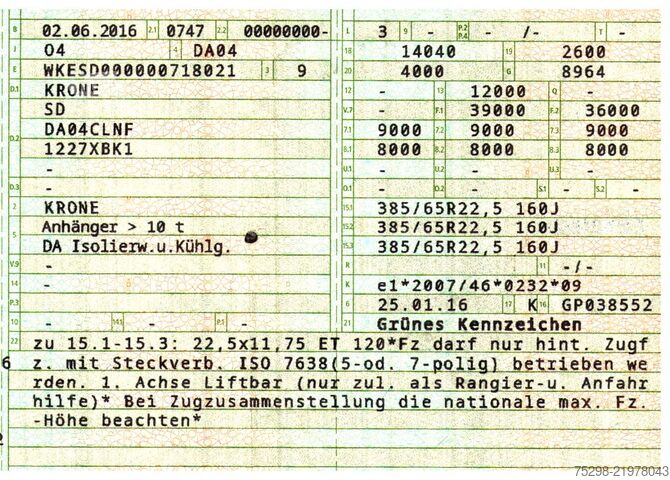 B 02.06.2016 2.1 0747 2.2 00000000- L 3 9 - P.2 P.4 - /- T -
J 04 4 DA04 18 14040 19 2600
E WKESD000000718021 3 9 20 4000 G 8964
D.1 KRONE 12 - 13 12000 Q -
SD V.7 - F.1 39000 F.2 36000
D.2 DA04CLNF 7.1 9000 7.2 9000 7.3 9000
1227XBK1 8.1 8000 8.2 8000 8.3 8000
- U.1 - U.2 - U.3 -
D.3 - O.1 - O.2 - S.1 - S.2 -
2 KRONE 15.1 385/65R22,5 160J
5 Anhänger > 10 t 15.2 385/65R22,5 160J
DA Isolierw.u.Kühlg. 15.3 385/65R22,5 160J
V.9 - R 11 -/-
14 - K e1*2007/46*0232*09
P.3 6 25.01.16 17 K 16 GP038552
10 - 14.1 - P.1 - 21 Grünes Kennzeichen
22 zu 15.1-15.3: 22,5x11,75 ET 120*Fz darf nur hint. Zugf
6 z. mit Steckverb. ISO 7638(5-od. 7-polig) betrieben we
rden. 1. Achse Liftbar (nur zul. als Rangier-u. Anfahr
hilfe)* Bei Zugzusammenstellung die nationale max. Fz.
-Höhe beachten*
75298-21978043